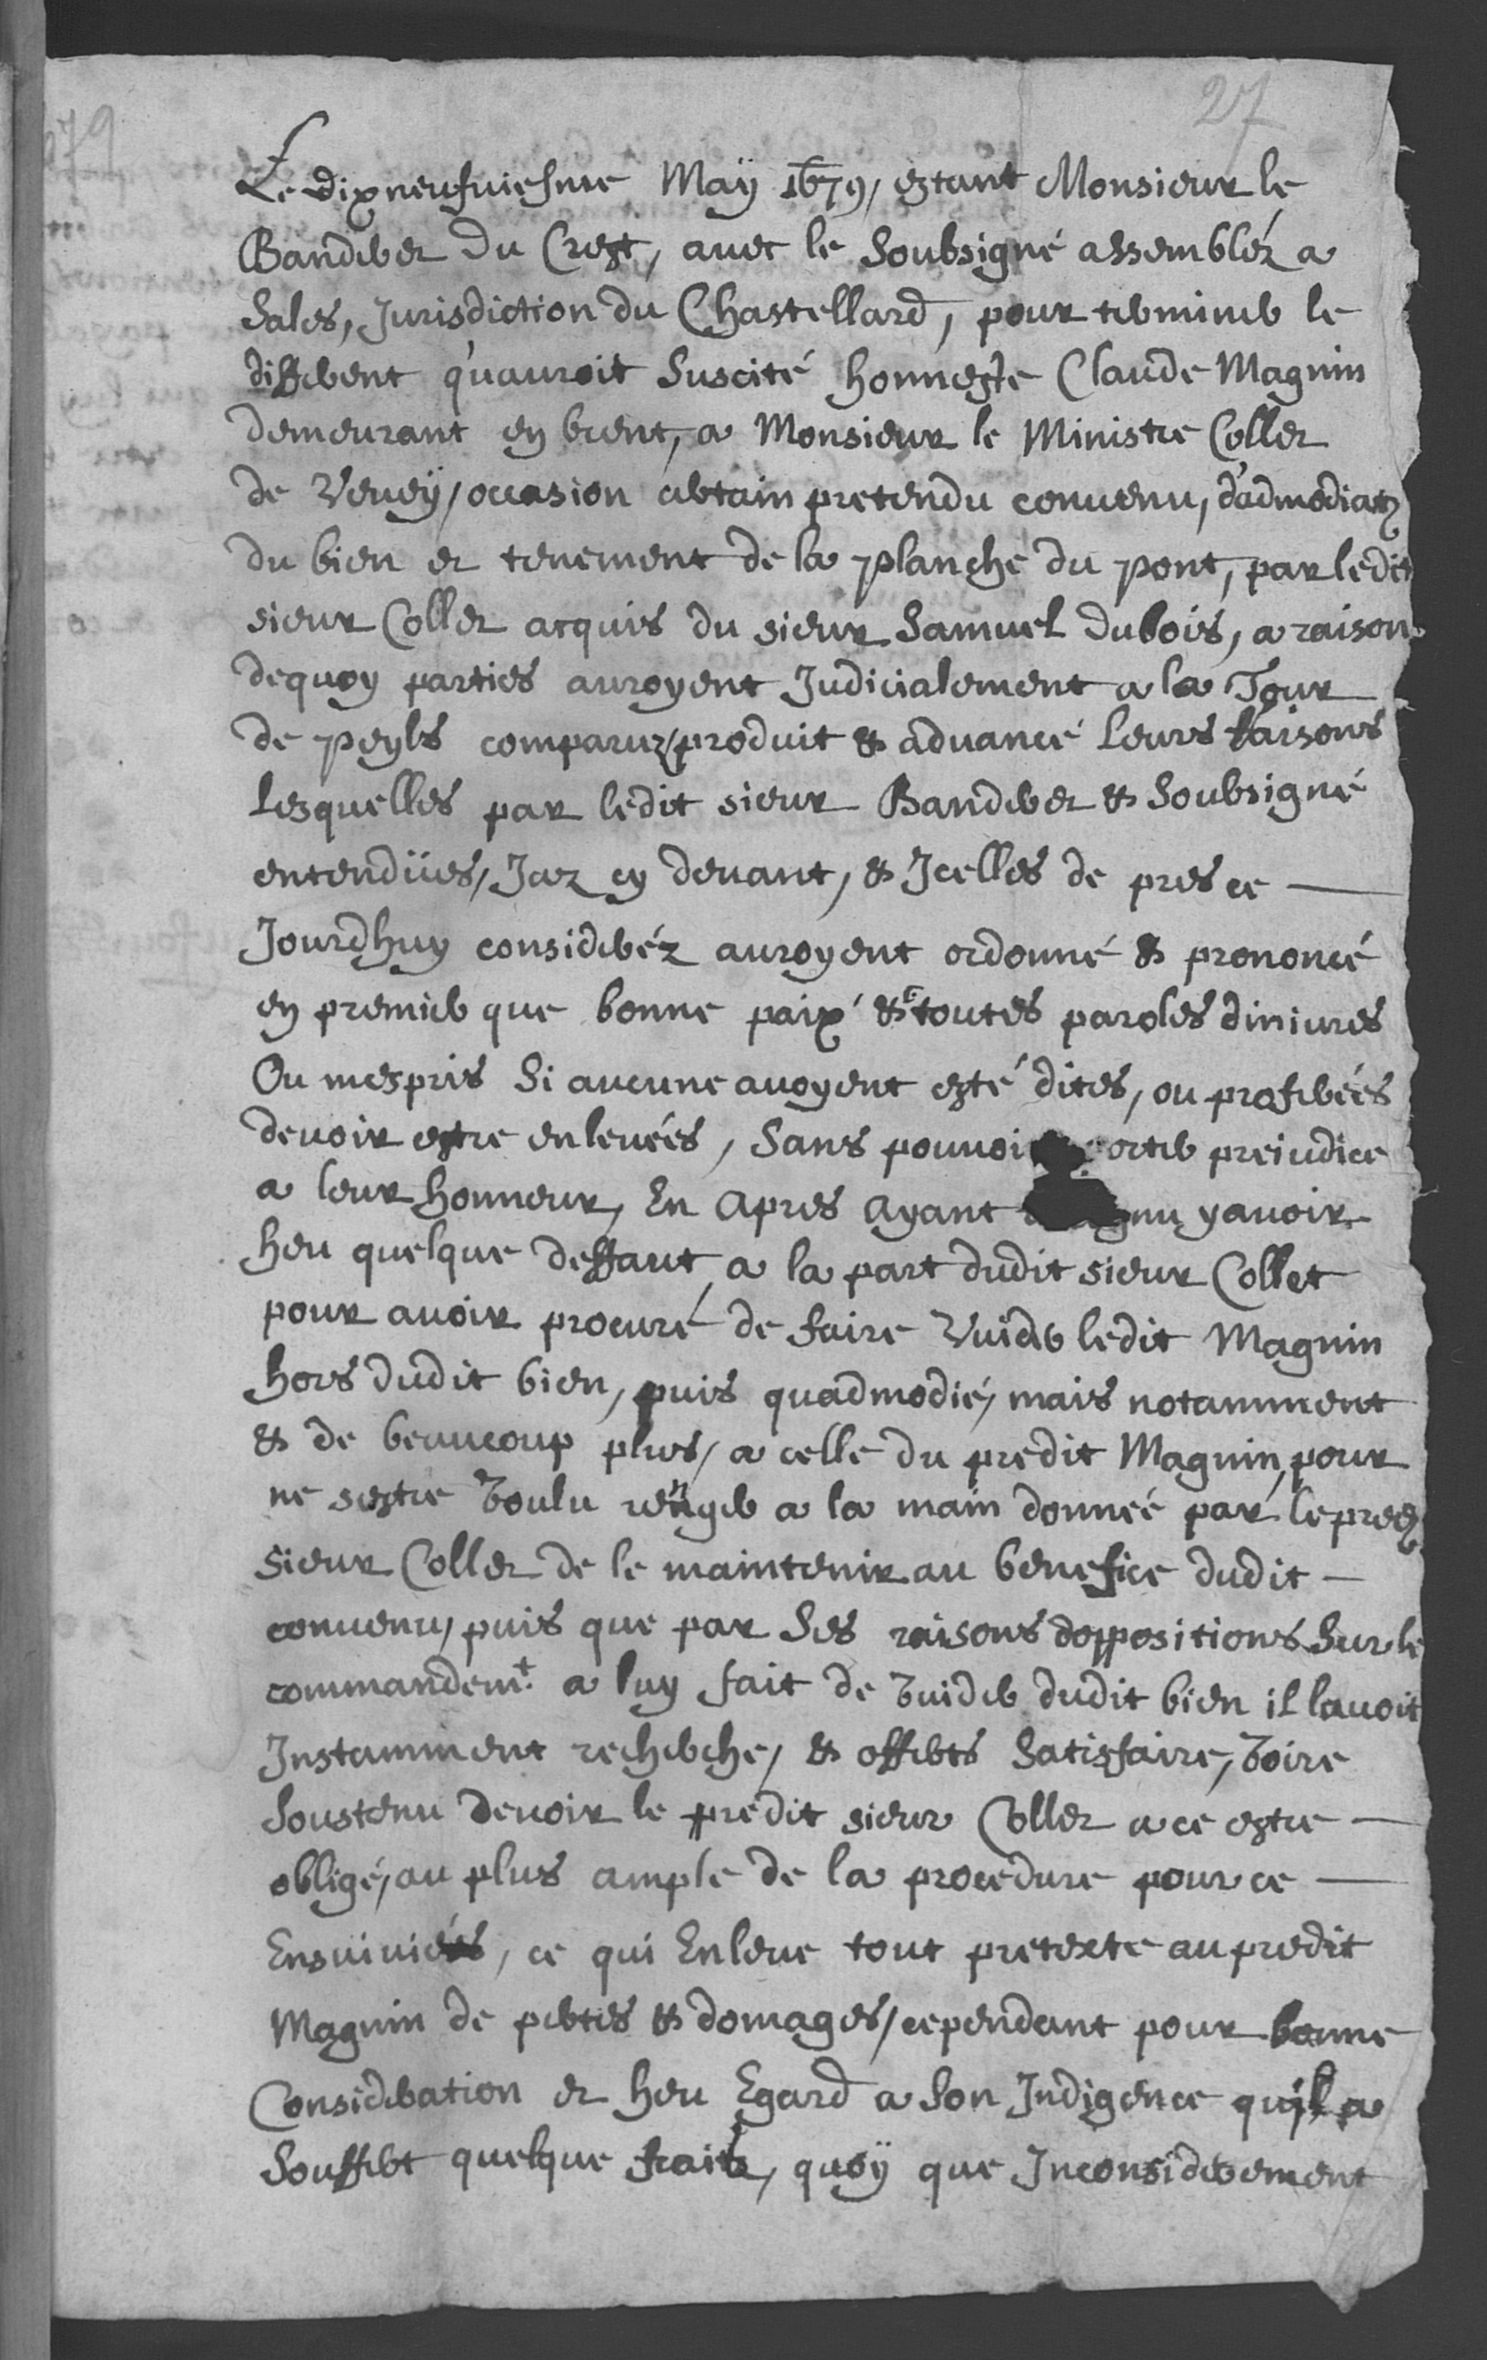 27
Le dixneufuiesme Maÿ 1679, estant Monsieur le
Banderet du Crest, auec le Soubsigné assembléz a
Sales, Jurisdiction du Chastellard, pour terminer le
different qu'auroit Suscité honneste Claude Magnin
demeurant en brent, a Monsieur le Ministre Collet
de Veueÿ, occasion certain pretendu conuenu, d'admodiat~
du bien et tenement de la planche du pont, par ledit
sieur Collet acquis du sieur Samuel Dubois, a raison
dequoy parties auroyent Judicialement a la Tour
de peyls comparuz, produit & aduancé Leurs raisons
Lesquelles par ledit sieur Banderet & Soubsigné
entendües, Jaz cy deuant, & Jcelles de pres ce
Jourdhuy consideréz auroyent ordonné & prononcé
en premier que bonne paix & toutes paroles diniures
Ou mespris Si aucune auoyent esté dites, ou proferées
deuoir estre enleuées, Sans pouuoi orter preiudice
a leur honneur, En Apres Ayant yauoir
heu quelque deffaut a la part dudit sieur Collet
pour auoir procuré de faire Vuider ledit Magnin
hors dudit bien, puis quadmodié, mais notamment
& de beaucoup plus, a celle du predit Magnin, pour
ne sestre Voulu renger a la main donneé par le pred~
Sieur Collet de le maintenir au benefice dudit
conuenu, puis que par Ses raisons doppositions Sur le
commandem.t a luy fait de Vuider dudit bien il lauoit
Instamment recherche, & offerts Satisfaire, Voire
Soustenu deuoir le predit sieur Collet a ce estre
obligé, au plus ample de la procedure pour ce
Ensuiuies, ce qui Enleue tout pretexte au predit
Magnin de pertes & domages, cependant pour bonne
Consideration et heu Egard a Son Jndigence quil a
Souffert quelque fraits, quoÿ que Jnconsiderement